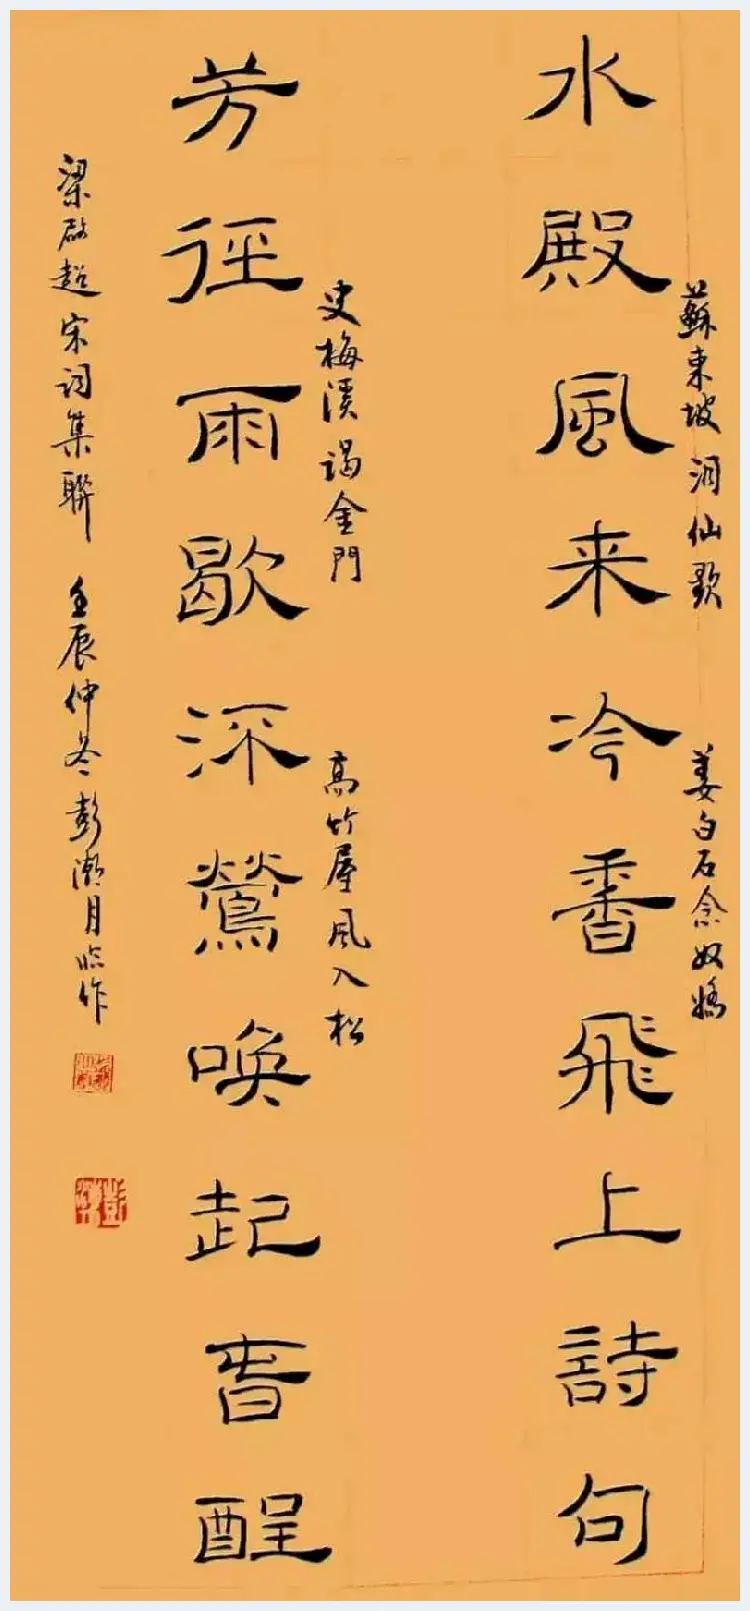 蘇東坡洞仙歌
姜白石念奴嬌
水殿風来冷香飛上詩句
史梅溪謁金門
高竹屋風入松
芳徑雨歇流鶯喚起春酲
梁啟超宋詞集聯 壬辰仲冬彭月臨作